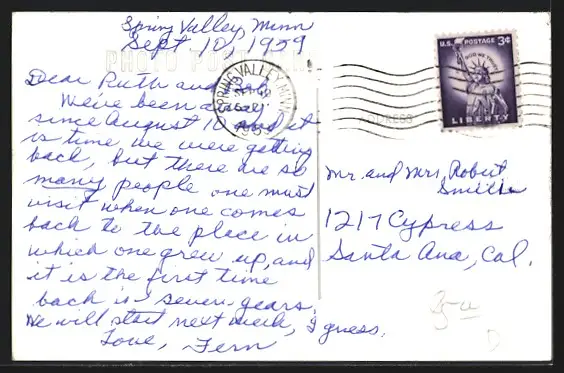 Spring Valley, Minn
Sept 10, 1959
PHOTO POST CARD
Dear Ruth and Bob,
We've been away
since August 10 and it
is time, we were getting
back, but there are so
many people one must
visit when one comes
back to the place in
which one grew up, and
it is the first time
back in seven years.
We will start next week, I guess.
Love, Fern
SPRING VALLEY, MINN.
1959
U.S. POSTAGE 3¢
IN GOD WE TRUST
LIBERTY
ADDRESS
Mr. and Mrs. Robert
1217 Cypress
Santa Ana, Cal.